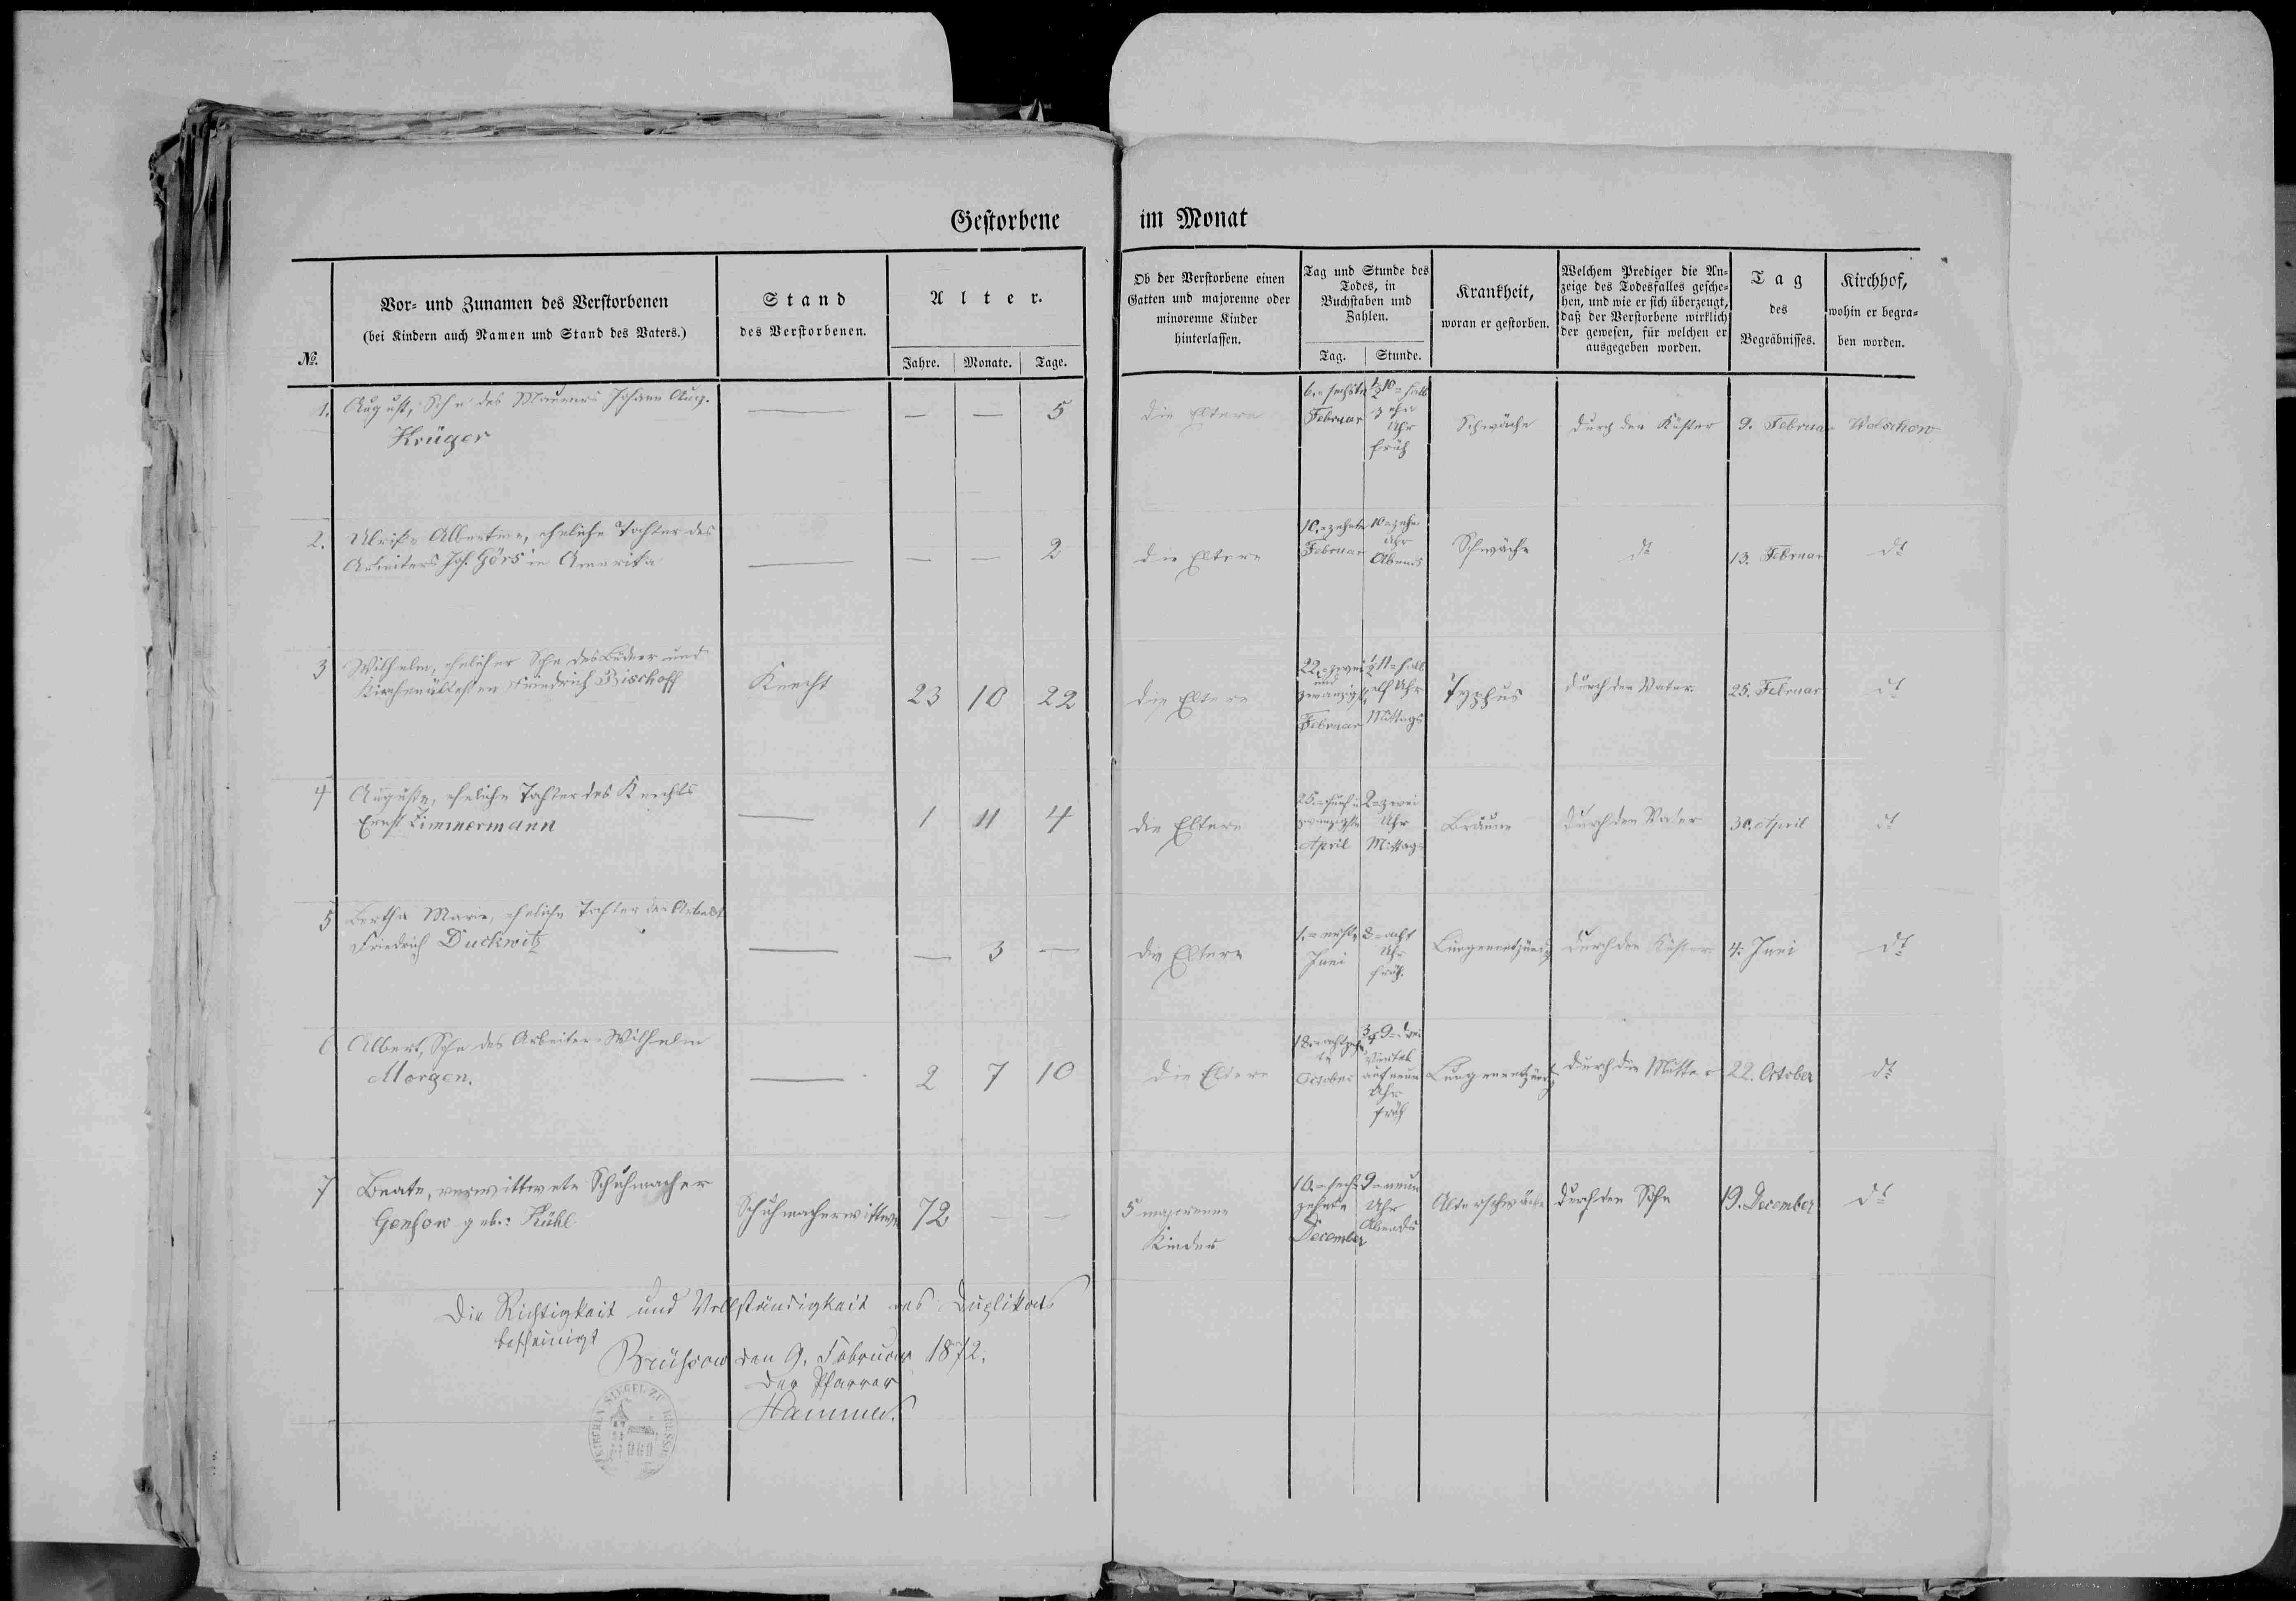 Gestorbene im Monat
№.
Vor- und Zunamen des Verstorbenen
(bei Kindern auch Namen und Stand des Vaters.)
Stand
des Verstorbenen.
Alter.
Jahre. Monate. Tage.
Ob der Verstorbene einen
Gatten und majorenne oder
minorenne Kinder
hinterlassen.
Tag und Stunde des
Todes, in
Buchstaben und
Zahlen.
Tag. Stunde.
Krankheit,
woran er gestorben.
Welchem Prediger die An-
zeige des Todesfalles gesche-
hen, und wie er sich überzeugt,
daß der Verstorbene wirklich
der gewesen, für welchen er
ausgegeben worden.
Tag
des
Begräbnisses.
Kirchhof,
wohin er begra-
ben worden.
1. August, Sohn des Maurers Johann Aug.
Krüger
— — — 5
die Eltern
6. = sechste
Februar
½10 = halb
zehn
Uhr
früh
Schwäche
durch den Küster
9. Februar
Wolschow
2. Ulrike Albertine, eheliche Tochter des
Arbeiters Joh. Görs in Amerika
— — — 2
die Eltern
10. = zehnte
Februar
10 = zehn
Uhr
Abends
Schwäche
dt
13. Februar
dt
3 Wilhelm, ehelicher Sohn des Büdner und
Kirchenältesten Friedrich Bischoff
Knecht
23 10 22
die Eltern
22. = zwei
und
zwanzigste
Februar
½11 = halb
elf Uhr
Mittags
Typhus
durch den Vater
25. Februar
dt
4 Auguste, eheliche Tochter des Knechts
Ernst Zimmermann
— 1 11 4
die Eltern
25. = fünf u
zwanzigste
April
2 = zwei
Uhr
Mittag
Bräune
durch den Vater
30. April
dt
5 Bertha Marie, eheliche Tochter des Arbeit
Friedrich Duckwitz
— — 3 —
die Eltern
1. = erste
Juni
8 = acht
Uhr
früh.
Lungenentzündg
durch den Küster
4. Juni
dt
6 Albert, Sohn des Arbeiters Wilhelm
Morgen.
— 2 7 10
die Eltern
18. = achtzehn
te
October
¾9 = drei
viertel
auf neun
Uhr
früh
Lungenentzündg
durch die Mutter
22. October
dt
7 Beate, verwittwete Schuhmacher
Genson geb: Kühl
Schuhmacherwittwe
72 — —
5 majorenne
Kinder
16. = sech
zehnte
December
9 = neun
Uhr
Abends
Altersschwäche
durch den Sohn
19. December
dt
Die Richtigkeit und Vollständigkeit des Duplikats
bescheinigt
Brüssow den 9. Februar 1872.
Der Pfarrer